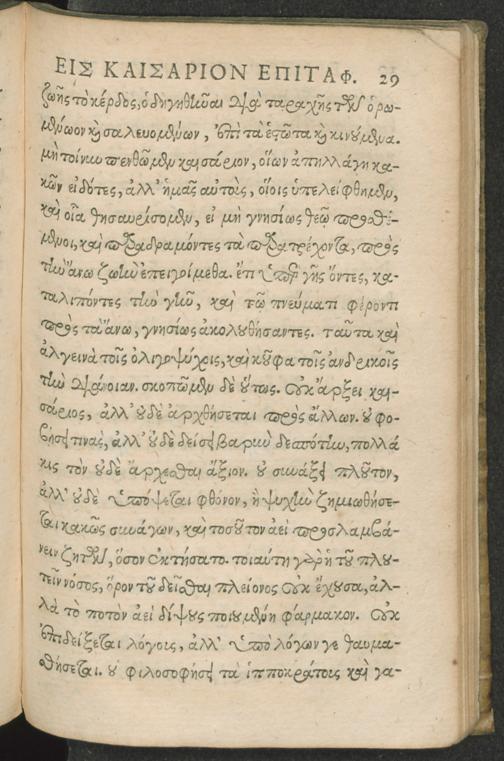 ΕΙΣ ΚΑΙΣΑΡΙΟΝ ΕΠΙΤΑΦ. 29
ζωῆς τὸ κέρδος, ὁδηγηθῆναι διὰ ταραχῆς τῶν ὁρω-
μένων καὶ σαλευομένων, ἐπὶ τὰ ἑστῶτα καὶ κινούμενα.
μὴ τοίνυν πενθῶμεν καισάριον, οἵων ἀπηλλάγη κα-
κῶν εἰδότες, ἀλλ' ἡμᾶς αὐτοὺς, οἵοις ὑπελείφθημεν,
καὶ οἷα θησαυρίσομεν, εἰ μὴ γνησίως θεῷ προσθέ-
μενοι, καὶ παραδραμόντες τὰ παρατρέχοντα, πρὸς
τὴν ἄνω ζωὴν ἐπειγοίμεθα. ἔτι ὑπὲρ γῆς ὄντες, κα-
ταλιπόντες τὴν γῆν, καὶ τῷ πνεύματι φέροντι
πρὸς τὰ ἄνω, γνησίως ἀκολουθήσαντες. ταῦτα καὶ
ἀλγεινὰ τοῖς ὀλιγοψύχοις, καὶ κοῦφα τοῖς ἀνδρικοῖς
τὴν διάνοιαν. σκοπῶμεν δὲ οὕτως. οὐκ ἄρξει και-
σάριος, ἀλλ' οὐδὲ ἀρχθήσεται πρὸς ἄλλων. οὐ φο-
βήσει τινας, ἀλλ' οὐδὲ δείσει βαρὺν δεσπότην, πολλά
κις τὸν οὐδὲ ἄρχεσθαι ἄξιον. οὐ συνάξει πλοῦτον,
ἀλλ' οὐδὲ ὑπόψεται φθόνον, ἢ ψυχὴν ζημιωθήσε-
ται κακῶς συνάγων, καὶ τοσοῦτον ἀεὶ προσλαμβά-
νειν ζητῶν, ὅσον ἐκτήσατο. τοιαύτη γὰρ ἡ τοῦ πλου-
τεῖν νόσος, ὅρον τοῦ δεῖσθαι πλείονος οὐκ ἔχουσα, ἀλ-
λὰ τὸ ποτὸν ἀεὶ δίψους ποιουμένη φάρμακον. οὐκ
ἐπιδείξεται λόγοις, ἀλλ' ὑπὸ λόγων γε θαυμα-
σθήσεται. οὐ φιλοσοφήσει τὰ ἱπποκράτους καὶ γα-